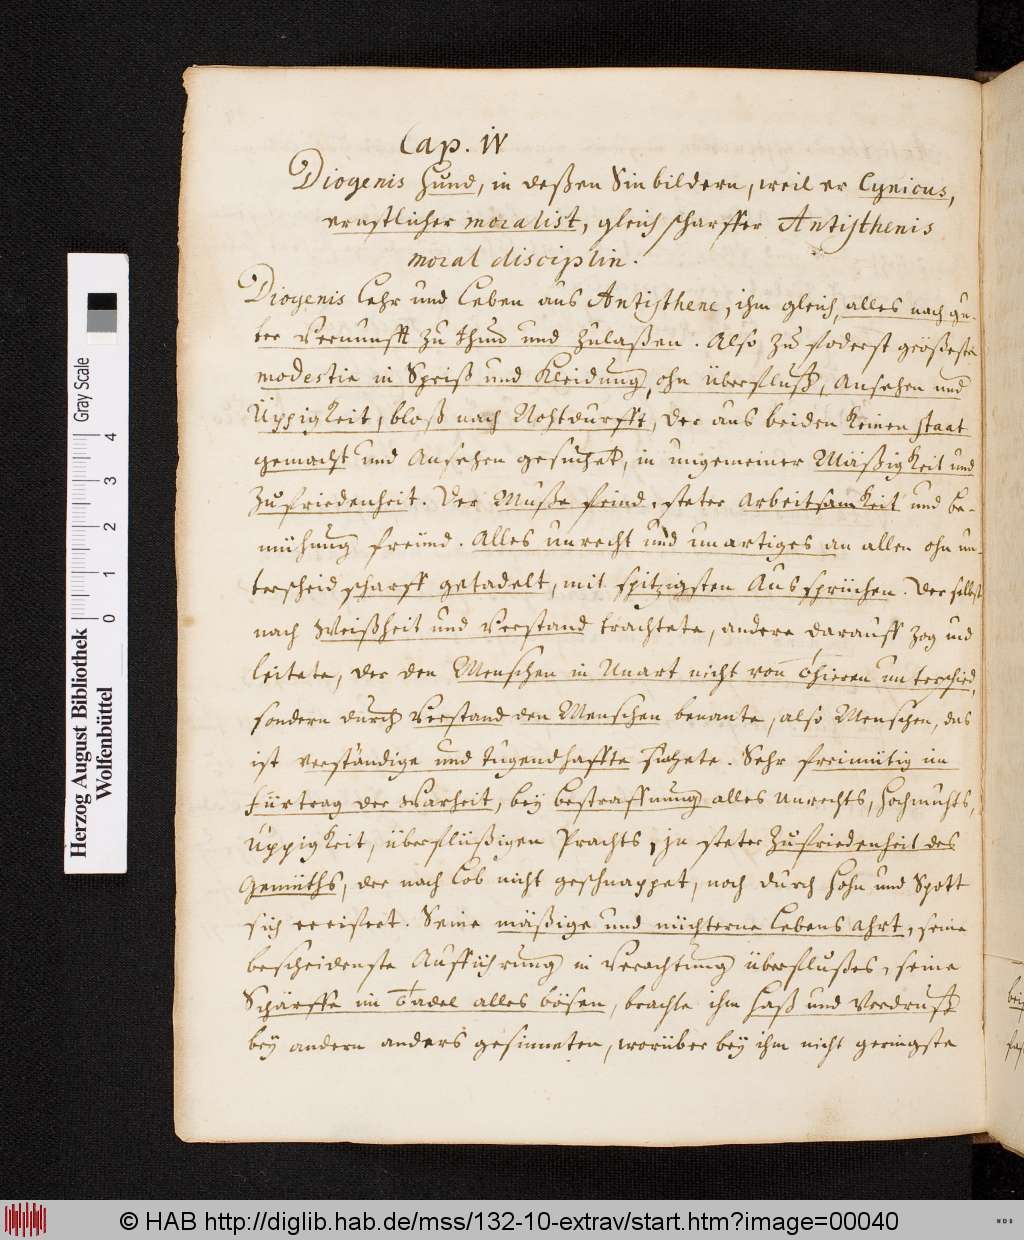 Cap. IV
Diogenis Hund, in deßen Sinbildern, weil er Cynicus,
ernstlicher moralist, gleich scharffer Antisthenis
moral disciplin.
Diogenis Lehr und Leben aus Antisthene, ihm gleich, alles nach gu-
ter Vernunfft zu thun und zulaßen. Also zu foderst größeste
modestie in Speiß und Kleidung, ohn überfluß, Ansehen und
Üppigkeit, bloß nach Nohtdurfft, der aus beiden keinen staat
gemacht und Ansehen gesuchet, in ungemeiner Mäßigkeit und
Zufriedenheit. Der Muße feind, steter arbeitsamkeit und be-
mühung freund. Alles unrecht und unartiges an allen ohn un-
terscheid scharff getadelt, mit spitzigsten Aussprüchen. Der selbst
nach Weißheit und Verstand trachtete, andere darauff zog und
leitete, der den Menschen in Unart nicht von Thieren unterschied,
sondern durch Verstand den Menschen benante, also Menschen, das
ist verständige und tugendhaffte suchete. Sehr freimütig im
Fürtrag der Warheit, bey bestraffnung alles Unrechts, Hochmuhts,
Üppigkeit, überflüßigen Prachts, in steter Zufriedenheit des
Gemüths, der nach Lob nicht geschnappet, noch durch Hohn und Spott
sich ereifert. Seine mäßige und nüchterne Lebens ahrt, seine
bescheidenste Aufführung in Verachtung überflußes, seine
Schärffe im Tadel alles bösen, brachte ihm Haß und Verdruß
bey andern anders gesinneten, worüber bey ihm nicht geringste
Herzog August Bibliothek
Wolfenbüttel
Gray Scale
0 1 2 3 4
© HAB http://diglib.hab.de/mss/132-10-extrav/start.htm?image=00040